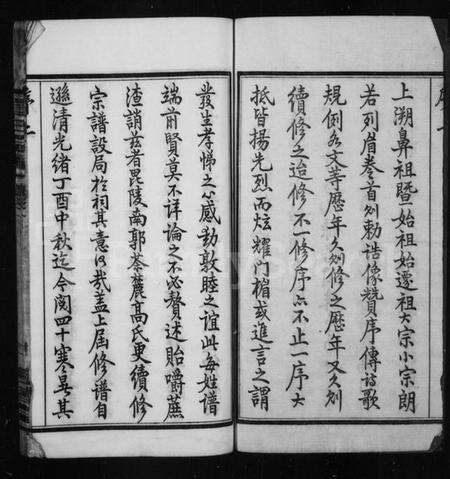 上溯鼻祖暨一始祖始遷祖大宗小宗朗
若列眉卷首勅誥像贊序傳詩歌
規例各文等歷年久則修之歷年又久則
續修之迨修不一修序亦不止一序大
抵皆揚先烈而炫耀門楣或進言之謂
發生孝悌之心感動敦睦之誼此每姓譜
端前賢莫不详論之不必贅述貽嚼蔗
渣誚茲者毘陵南郭茶麓高氏更續修
宗譜設局於祠其意何哉盖上屆修譜自
遜清光緒丁酉中秋迄今閱四十寒暑其
序
二